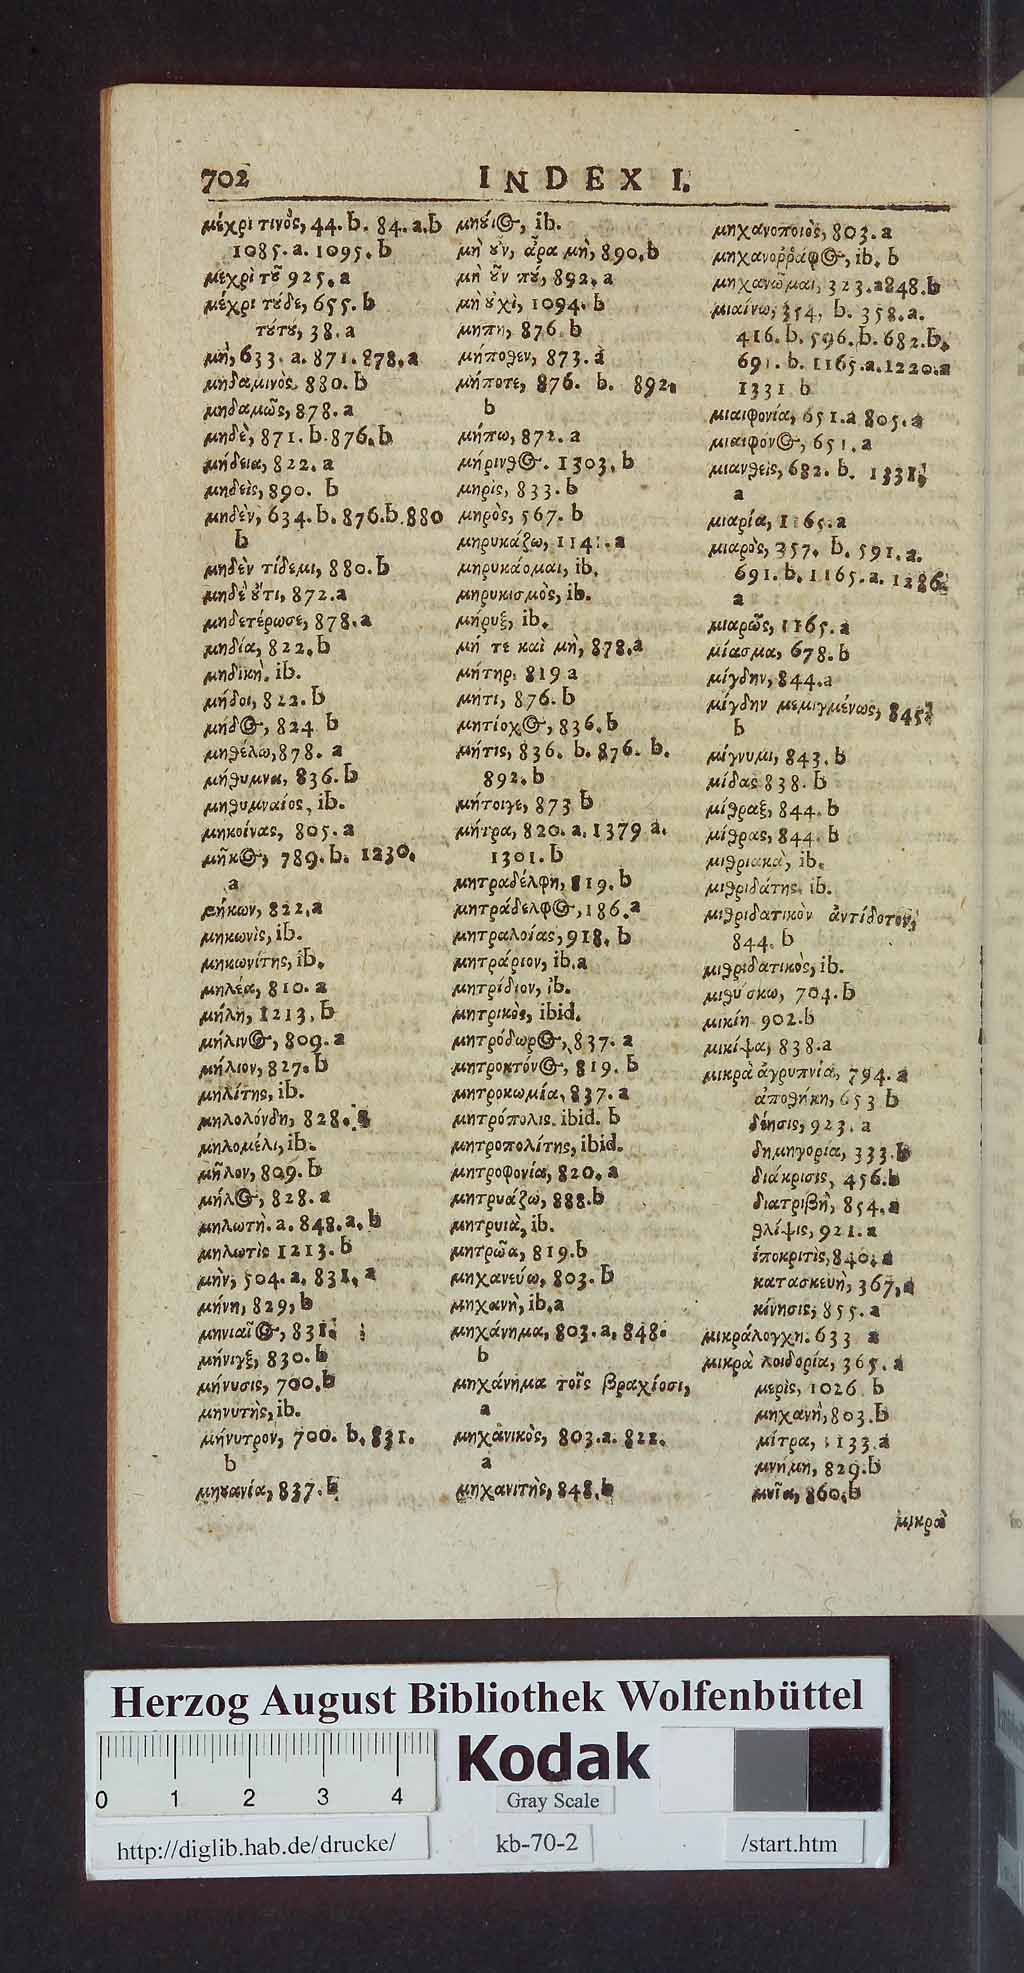 702 INDEX I.
μέχρι τινὸς, 44. b. 84. a. b
1085. a. 1095. b
μέχρι τȣ͂ 925. a
μέχρι τȣ́δε, 655. b
τȣ́τȣ, 38. a
μὴ, 633. a. 871. 878. a
μηδαμινὸς. 880. b
μηδαμῶς, 878. a
μηδὲ, 871. b. 876. b
μήδεια, 822. a
μηδεὶς, 890. b
μηδὲν, 634. b. 876. b. 880
b
μηδὲν τίθεμι, 880. b
μηδὲ ὅτι, 872. a
μηδετέρωσε, 878. a
μηδία, 822. b
μηδικὴ. ib.
μήδοι, 822. b
μήδος, 824 b
μηθέλω, 878. a
μήθυμνα, 836. b
μηθυμναίος, ib.
μηκοίνας, 805. a
μῆκος, 789. b. 1230.
a
μήκων, 822. a
μηκωνὶς, ib.
μηκωνίτης, ib.
μηλέα, 810. a
μήλη, 1213. b
μήλινος, 809. a
μήλιον, 827. b
μηλίτης, ib.
μηλολόνθη, 828.
μηλομέλι, ib.
μῆλον, 809. b
μήλος, 828. a
μηλωτὴ. a. 848. a. b
μηλωτὶς 1213. b
μὴν, 504. a. 831. a
μήνη, 829, b
μηνιαῖος, 831.
μήνιγξ, 830. b
μήνυσις, 700. b
μηνυτὴς, ib.
μήνυτρον, 700. b. 831.
b
μηȣανία, 837. b
μηȣ́ιος, ib.
μὴ ȣ̓ν, ἆρα μὴ, 890. b
μὴ ȣ̓͂ν πȣ́, 892. a
μὴ ȣ̓χὶ, 1094. b
μήπη, 876. b
μήποθεν, 873. a
μήποτε, 876. b. 892.
b
μήπω, 872. a
μήρινθος. 1303. b
μηρὶς, 833. b
μηρὸς, 567. b
μηρυκάζω, 114 . a
μηρυκάομαι, ib.
μηρυκισμὸς, ib.
μήρυξ, ib.
μή τε καὶ μὴ, 878. a
μήτηρ. 819 a
μητι, 876. b
μητίοχος, 836. b
μήτις, 836. b. 876. b.
892. b
μήτοιγε, 873 b
μήτρα, 820. a. 1379 a.
1301. b
μητραδέλφη, 819. b
μητράδελφος, 186. a
μητραλοίας, 918. b
μητράριον, ib. a
μητρίδιον, ib.
μητρικὸς, ibid.
μητρόδωρος, 837. a
μητροκτόνος, 819. b
μητροκωμία, 837. a
μητρόπολις. ibid. b
μητροπολίτης, ibid.
μητροφονία, 820. a
μητρυάζω, 888. b
μητρυιὰ, ib.
μητρῶα, 819. b
μηχανεύω, 803. b
μηχανὴ, ib. a
μηχάνημα, 803. a. 848.
b
μηχάνημα τοῖς βραχίοσι,
a
μηχανικὸς, 803. a. 822.
a
μηχανιτὴς, 848. b
μηχανοποιὸς, 803. a
μηχανοῤῥάφος, ib. b
μηχανῶμαι, 323. a 848. b
μιαίνω, 354. b. 358. a.
416. b. 596. b. 682. b.
691. b. 1165. a. 1220. a
1331 b
μιαιφονία, 651. a 805. a
μιαιφόνος, 651. a
μιανθεὶς, 682. b. 1331.
a
μιαρία, 1165. a
μιαρὸς, 357. b. 591. a.
691. b. 1165. a. 1286.
a
μιαρῶς, 1165. a
μίασμα, 678. b
μίγδην, 844. a
μίγδην μεμιγμένως, 845.
b
μίγνυμι, 843. b
μίδας 838. b
μίθραξ, 844. b
μίθρας, 844. b
μιθριακὰ, ib.
μιθριδάτης. ib.
μιθριδατικὸν ἀντίδοτον,
844. b
μιθριδατικὸς, ib.
μιθύσκω, 704. b
μικίη 902. b
μικίψα, 838. a
μικρὰ ἀγρυπνία, 794. a
ἀποθήκη, 653 b
δέησις, 923. a
δημηγορία, 333. b
διάκρισις, 456. b
διατριβὴ, 854. a
θλίψις, 921. a
ὑποκριτὶς, 840. a
κατασκευὴ, 367, a
κίνησις, 855. a
μικράλογχη. 633 a
μικρὰ λοιδορία, 365. a
μερὶς, 1026. b
μηχανὴ, 803. b
μίτρα, 1133 a
μνήμη, 829. b
μνῖα, 860. b
μικρὰ
Herzog August Bibliothek Wolfenbüttel
0 1 2 3 4
Kodak
Gray Scale
http://diglib.hab.de/drucke/ kb-70-2 /start.htm